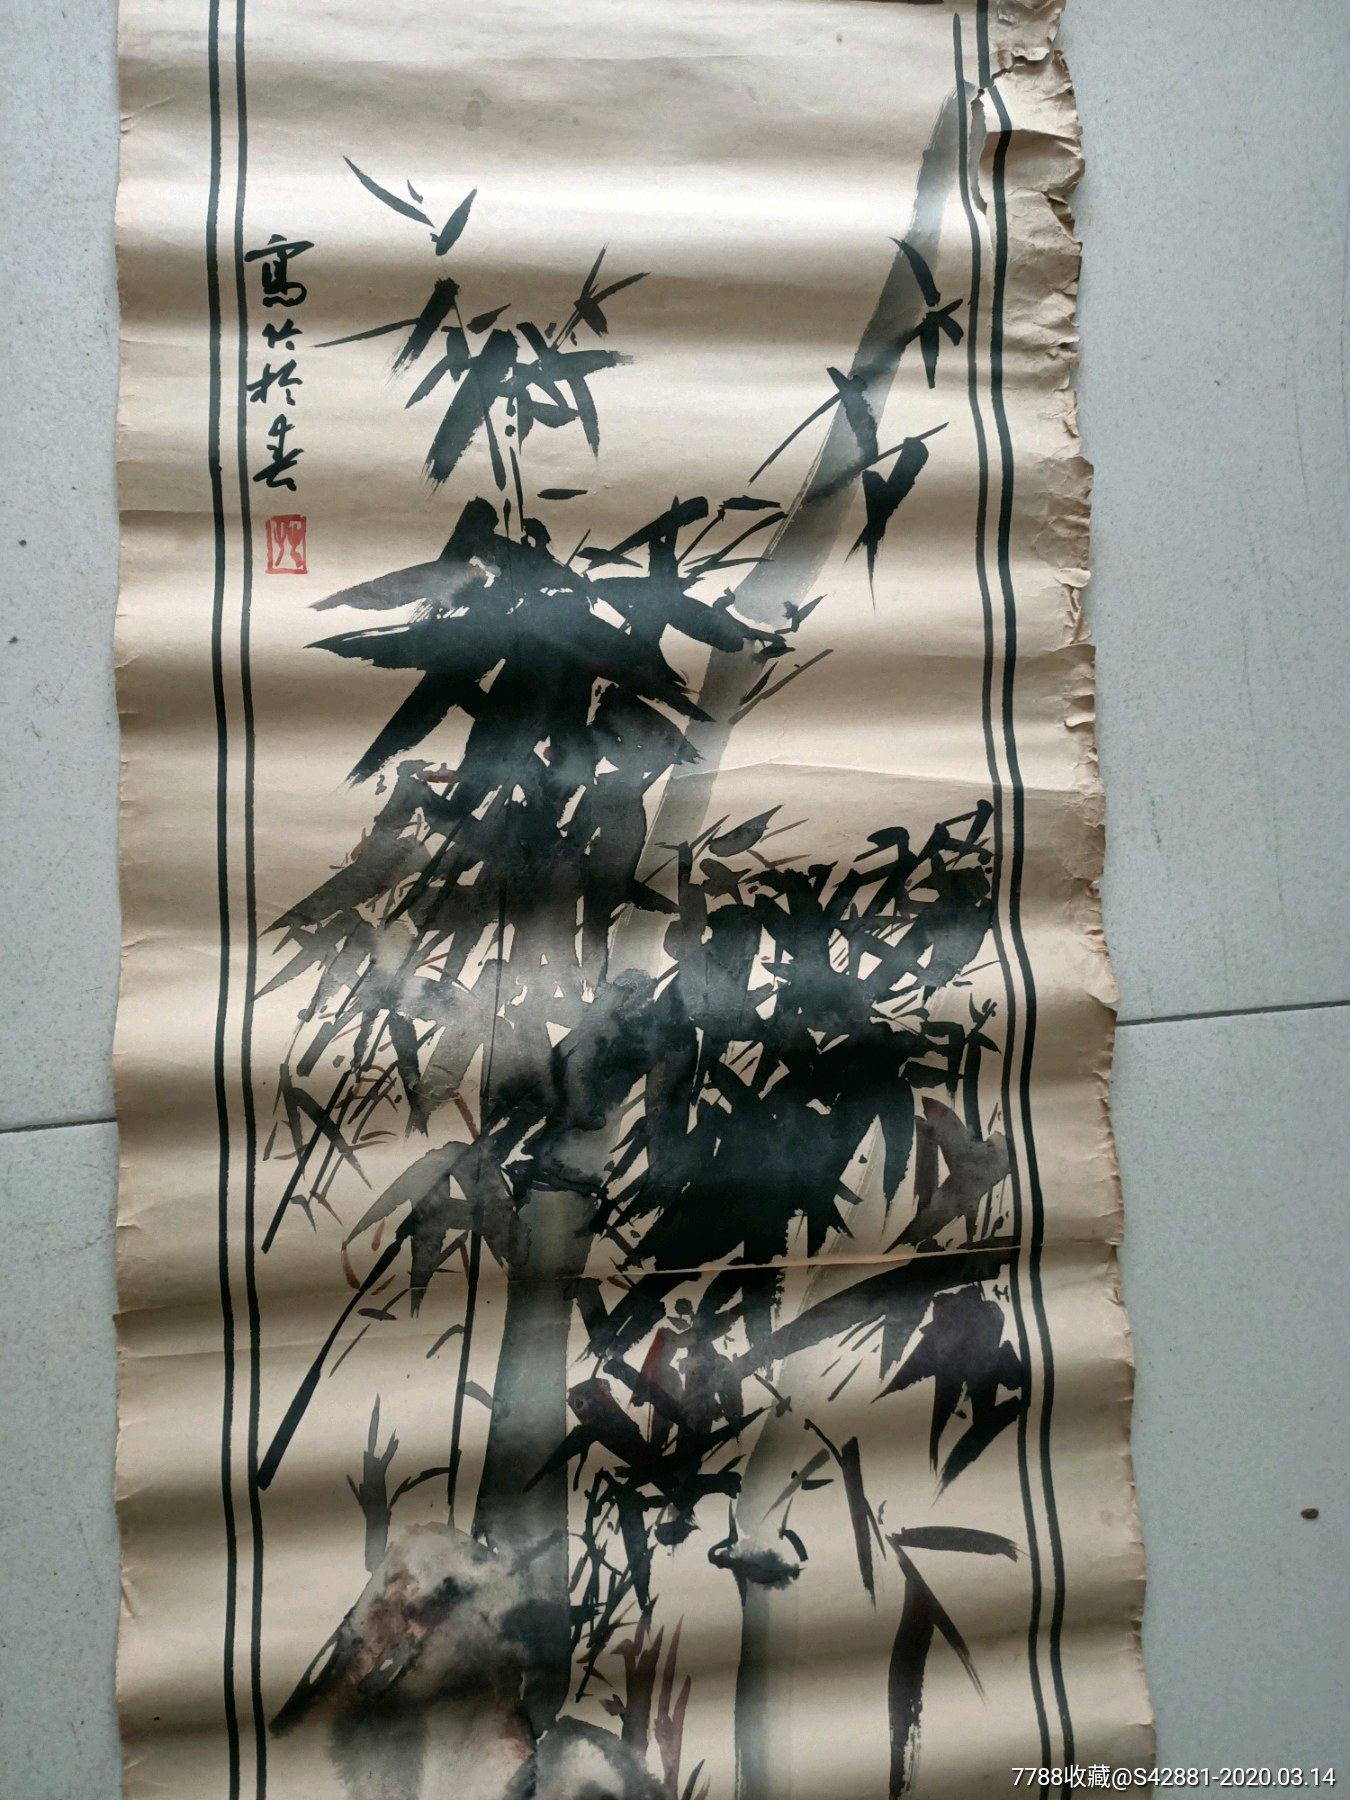 寫竹於春
7788收藏@S42881-2020.03.14